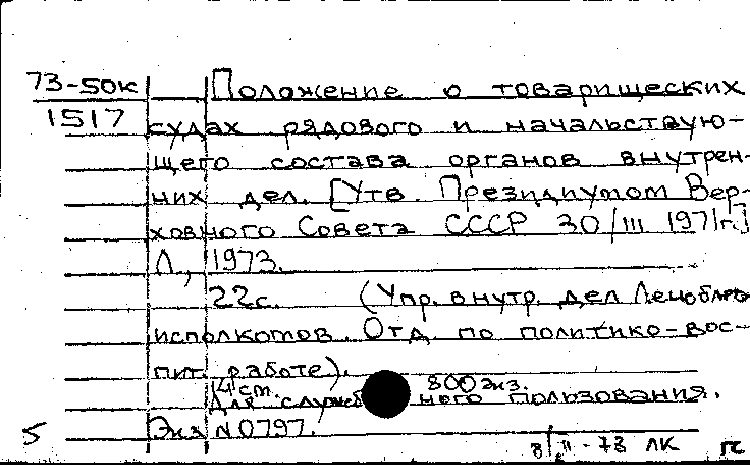 73-50к
1517
Положение о товарищеских
судах рядового и начальствую-
щего состава органов внутрен-
них дел. [Утв. Президиумом Вер-
ховного Совета СССР 30/III 1971г.]
Л., 1973.
22с. (Упр. внутр. дел Леноблгор-
исполкомов. Отд. по политико-вос-
пит. работе).
14 cm. 800 экз.
Для служебного пользования.
Экз N 0797.
5
8/II-73 ЛК гс